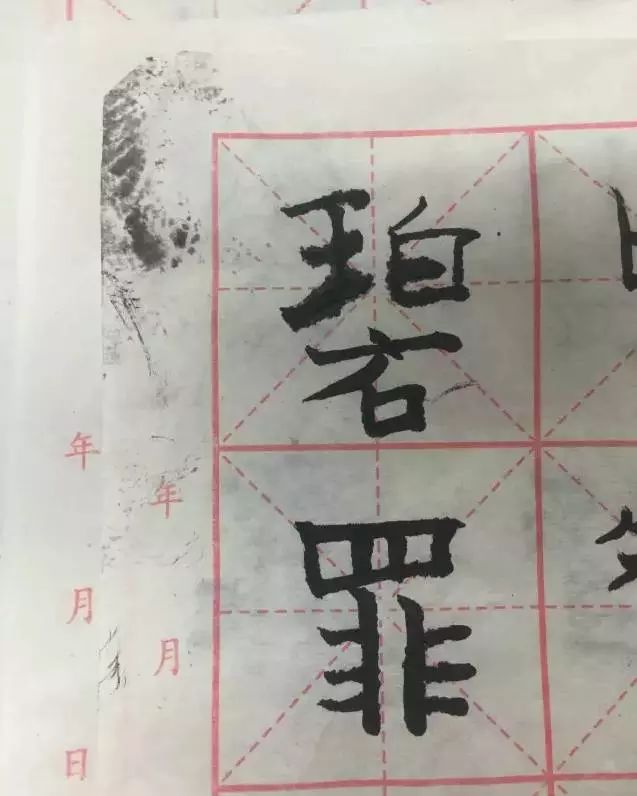 碧
罪
年
月
日
年
月